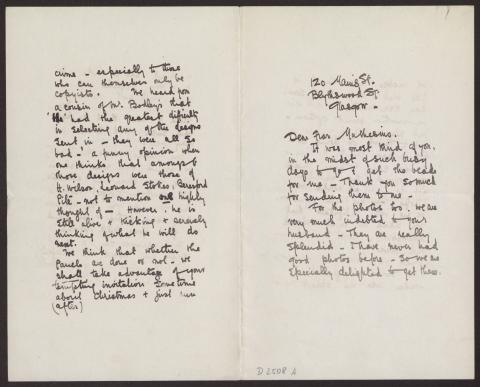 120 Mains St.
Blythswood Sq
Glasgow.
Dear Frau Muthesius.
It was most kind of you,
in the midst of such busy
days to get the beads
for me - Thank you so much
for sending them to me -
For the photos too, we are
very much indebted to your
husband - They are really
splendid - I have never had
good photos before - so we are
especially delighted to get these.
crime - especially to those
who can themselves only be
copyists. We heard from
a cousin of Mr. Bodley's that
He had the greatest difficulty
in selecting any of the designs
sent in - they were all so
bad - a funny opinion when
one thinks that amongst
those designs were those of
H. Wilson, Leonard Stokes, Beresford
Pite - not to mention one highly
thought of - However, he is
still alive + kicking + seriously
thinking of what he will do
next.
We think that whether the
Panels are done or not - we
shall take advantage of your
tempting invitation sometime
about Christmas + just run
(after)
D 2508 A